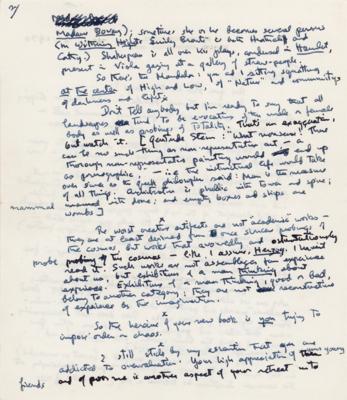 7/
Madam Bovary); sometimes she or he becomes several persons
(in Wuthering Heights Emily Brontë is both Heathcliff and
Cathy.) Shakespeare is all over his plays, condensed in Hamlet,
present in Viola gazing at a gallery of straw-people.
So there's the Mandala: you sitting
at the center of High and Low, of "Nature" and community,
of darkness and light.
Don't tell anybody but I'm ready to say that all
landscapes tend to be evocations of the nude or female
body as well as probings of totality. That's an exaggeration,
but watch it. [Gertrude Stein: "What nonsense"] There
can be no such thing as non-representative art — and a
thorough non-representative painting would end up
as pornographic; — i.e. the instinctual life would take
over since as the Greek philosopher said: Man is the measure
of all things: architecture is phallic into town and spire;
mammal into dome; and empty boxes and ships
mammal
wombs]
The worst creative artifacts are not academic works —
they are at least derived from some similar probings of
the cosmos, but works that avowedly and ostentatiously
probe
probing of the cosmos — (like, I assume, Herzog, I haven't
read it. Such works are not assemblages from experience
about us, but exhibitions of a man thinking about
experience. Exhibitions of a man thinking, good or bad,
belong to another category; they are not reconstructions
of experience by the imagination.
So the heroine of your new book is you trying to
impose order on chaos.
I still stick by my assertion that you are
addicted to overvaluation. Your high appreciation of your young
friends
and of poor me is another aspect of your retreat into